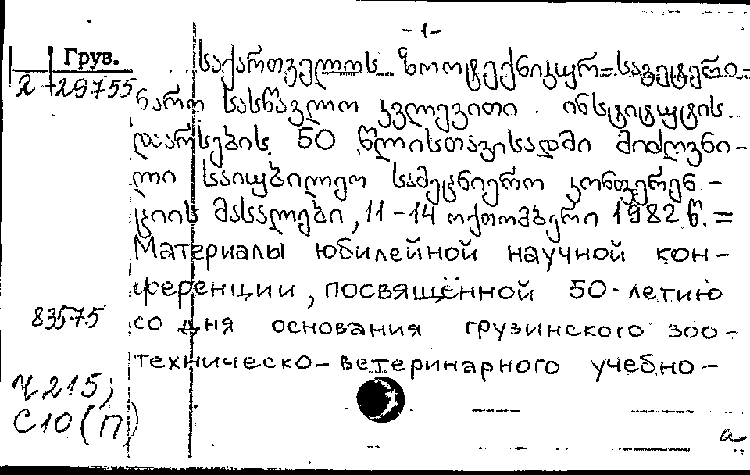 -1-
Груз.
2-29755
საქართველოს ზოოტექნიკურ-სავეტერი-
ნარო სასწავლო კვლევითი ინსტიტუტის
დაარსების 50 წლისთავისადმი მიძღვნი-
ლი საიუბილეო სამეცნიერო კონფერენ-
ციის მასალები, 11-14 ოქტომბერი 1982 წ. =
Материалы юбилейной научной кон-
ференции, посвящённой 50-летию
83575
со дня основания грузинского зоо-
техническо-ветеринарного учебно-
Ч215;
С10(П)
а